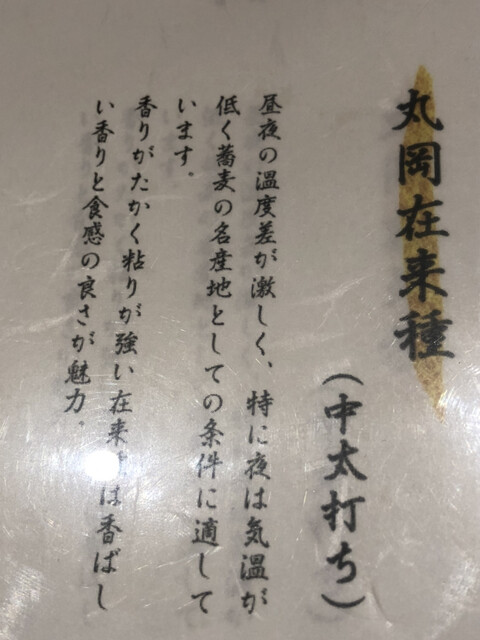 丸岡在来種
(中太打ち)
昼夜の温度差が激しく、特に夜は気温が
低く蕎麦の名産地としての条件に適して
います。
香りがたかく粘りが強い在来種は香ばし
い香りと食感の良さが魅力。